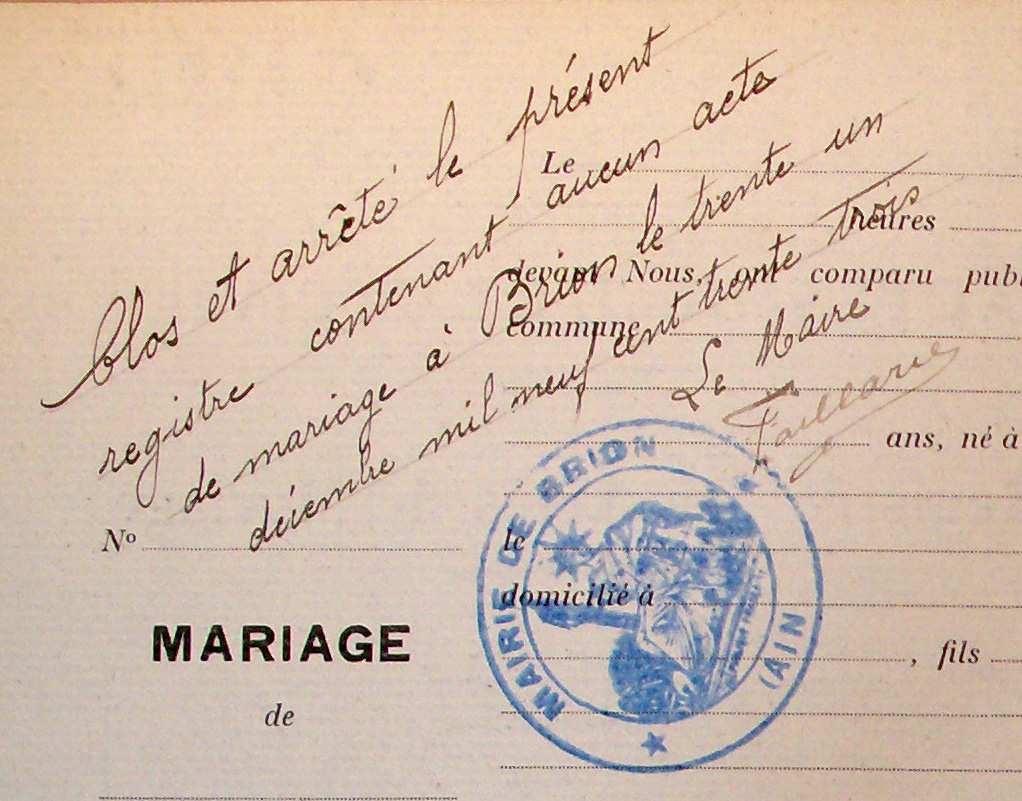 Clos et arrêté le présent
registre contenant aucun acte
de mariage à Brion le trente un
décembre mil neuf cent trente trois
Le Maire
Le
heures
devant Nous, ont comparu publ
commune
ans, né à
No
le
domicilié à
, fils
MARIAGE
de
MAIRIE DE BRION
(AIN)